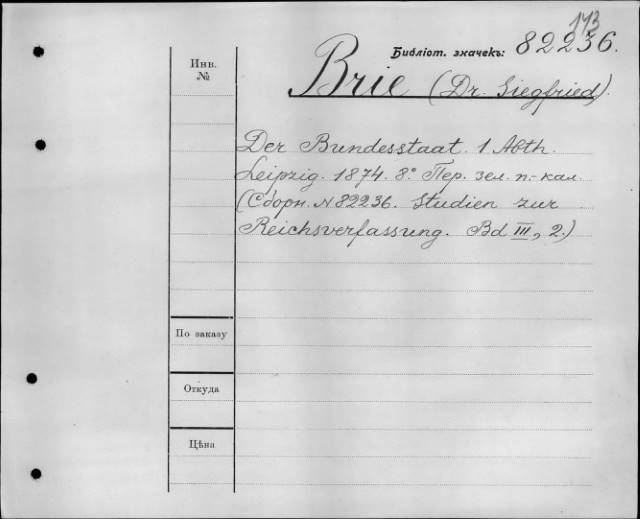 143
Библіот. значекъ: 82236.
Инв.
№
Brie (Dr. Siegfried).
Der Bundesstaat. 1 Abth.
Leipzig. 1874. 8° Пер. зел. п.-кал.
(Сборн. N 82236. Studien zur
Reichsverfassung. Bd III, 2.)
По заказу
Откуда
Цѣна